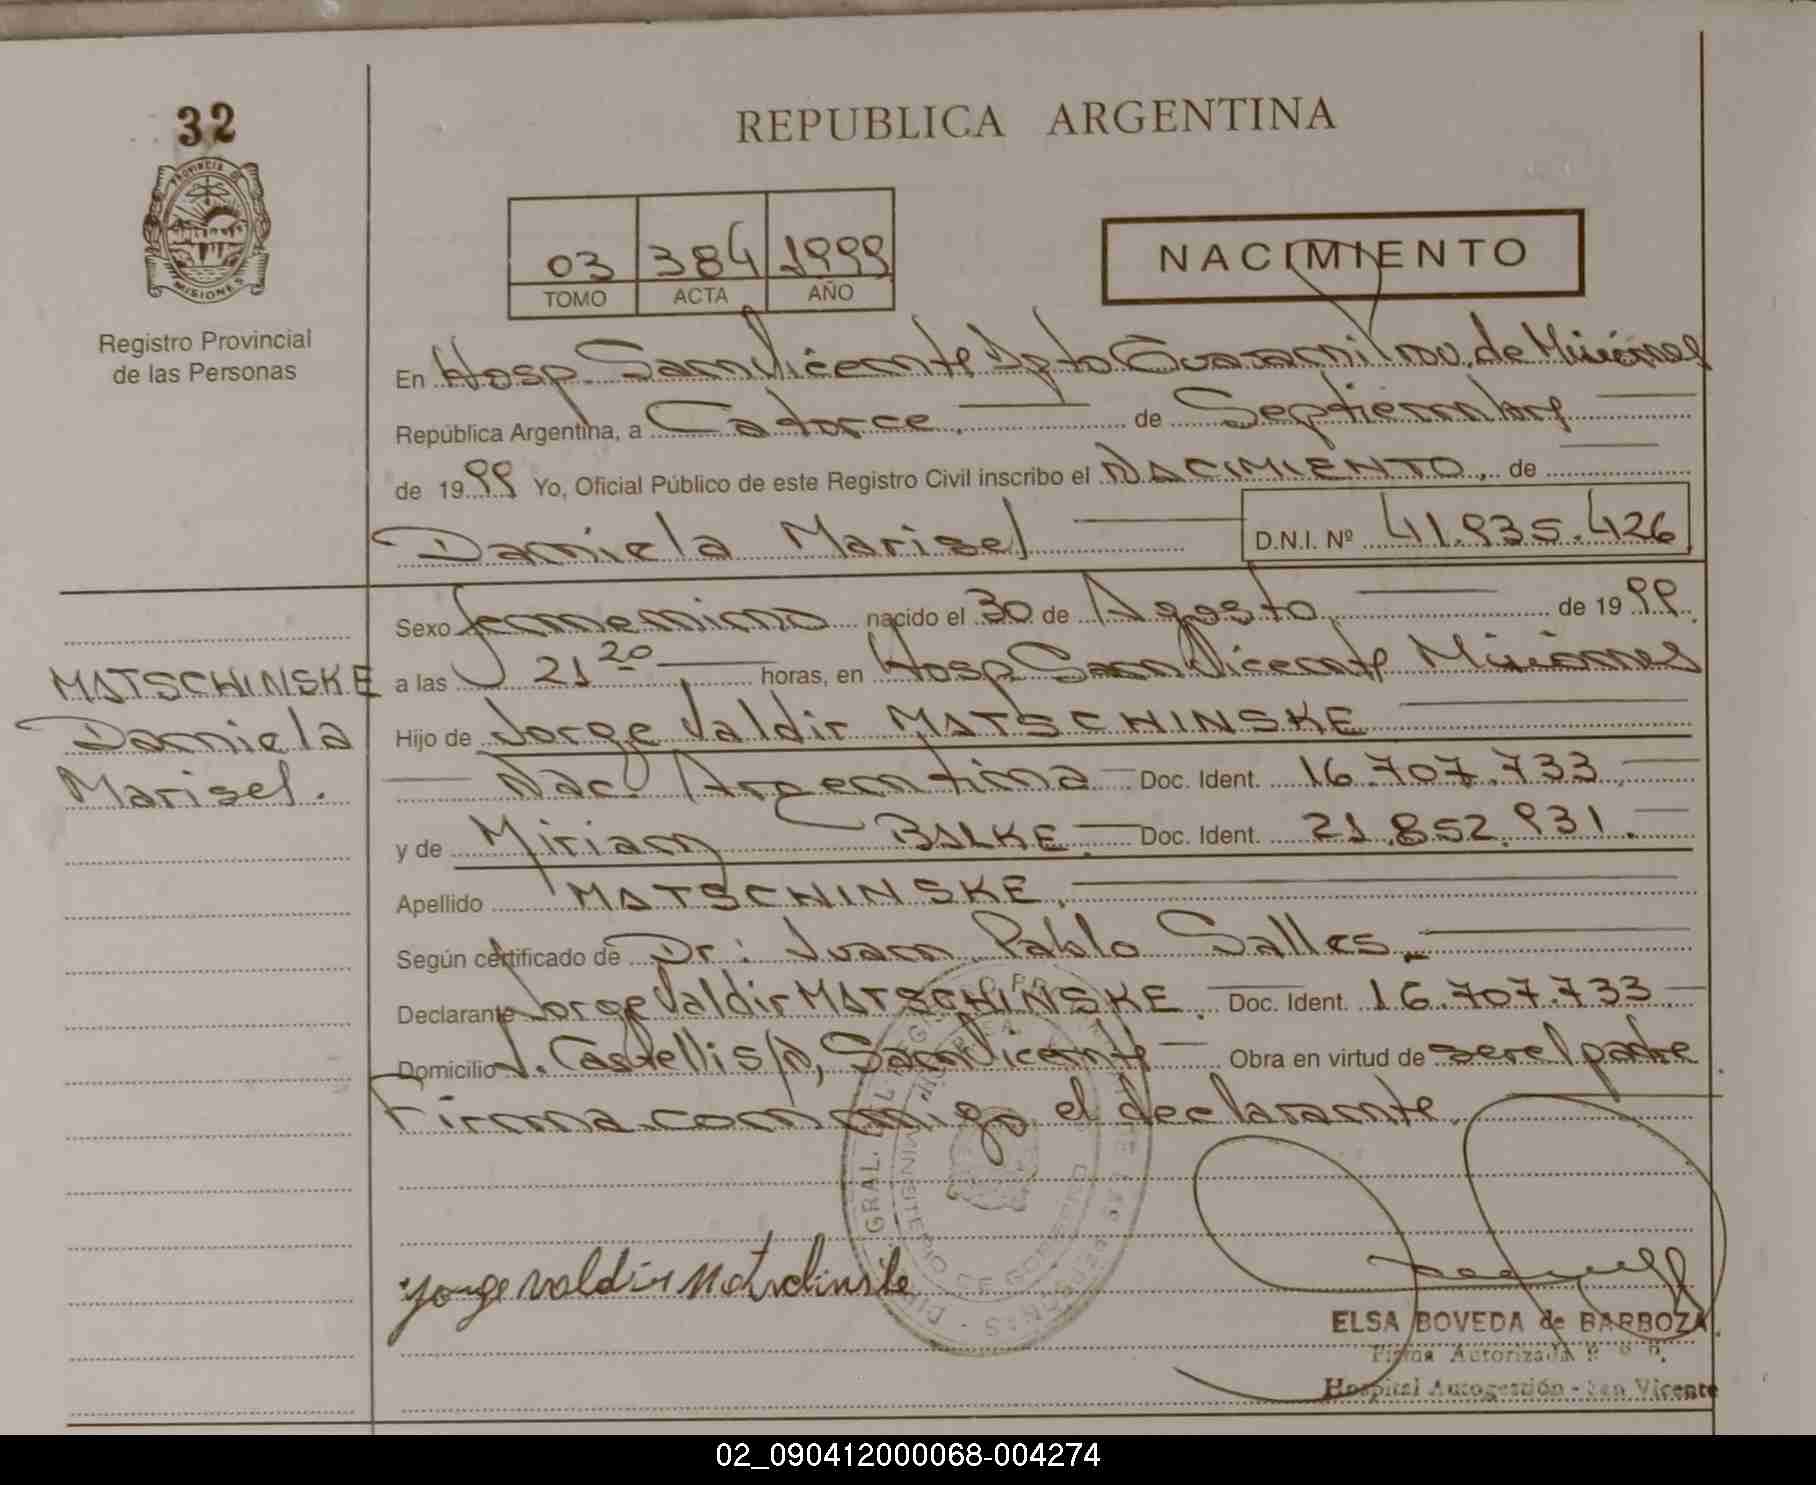 32
PROVINCIA DE
MISIONES
Registro Provincial
de las Personas
REPUBLICA ARGENTINA
03 384 1999
TOMO ACTA AÑO
NACIMIENTO
En Hosp. San Vicente Dpto Guaraní Prov. de Misiones
República Argentina, a Catorce. de Septiembre
de 1999 Yo, Oficial Público de este Registro Civil inscribo el NACIMIENTO, de
Daniela Marisel D.N.I. Nº 41.935.426
Sexo femenino nacido el 30 de Agosto de 1999.
a las 21 20 horas, en Hosp San Vicente Misiones
Hijo de Jorge Valdir MATSCHINSKE
Nac. Argentina Doc. Ident. 16.707.733
y de Miriam BALKE. Doc. Ident. 21.852.931.
Apellido MATSCHINSKE.
Según certificado de Dr: Juan Pablo Salles.
Declarante Jorge Valdir MATSCHINSKE. Doc. Ident. 16.707.733
Domicilio J. Castelli s/n, San Vicente Obra en virtud de ser el padre
Firma conmigo el declarante.
MATSCHINSKE
Daniela
Marisel.
Jorge Valdir Matschinske
ELSA BOVEDA de BARBOZA
Firma Autorizada
Hospital Autogestión - San Vicente
MINISTERIO DE GOBIERNO
02_090412000068-004274